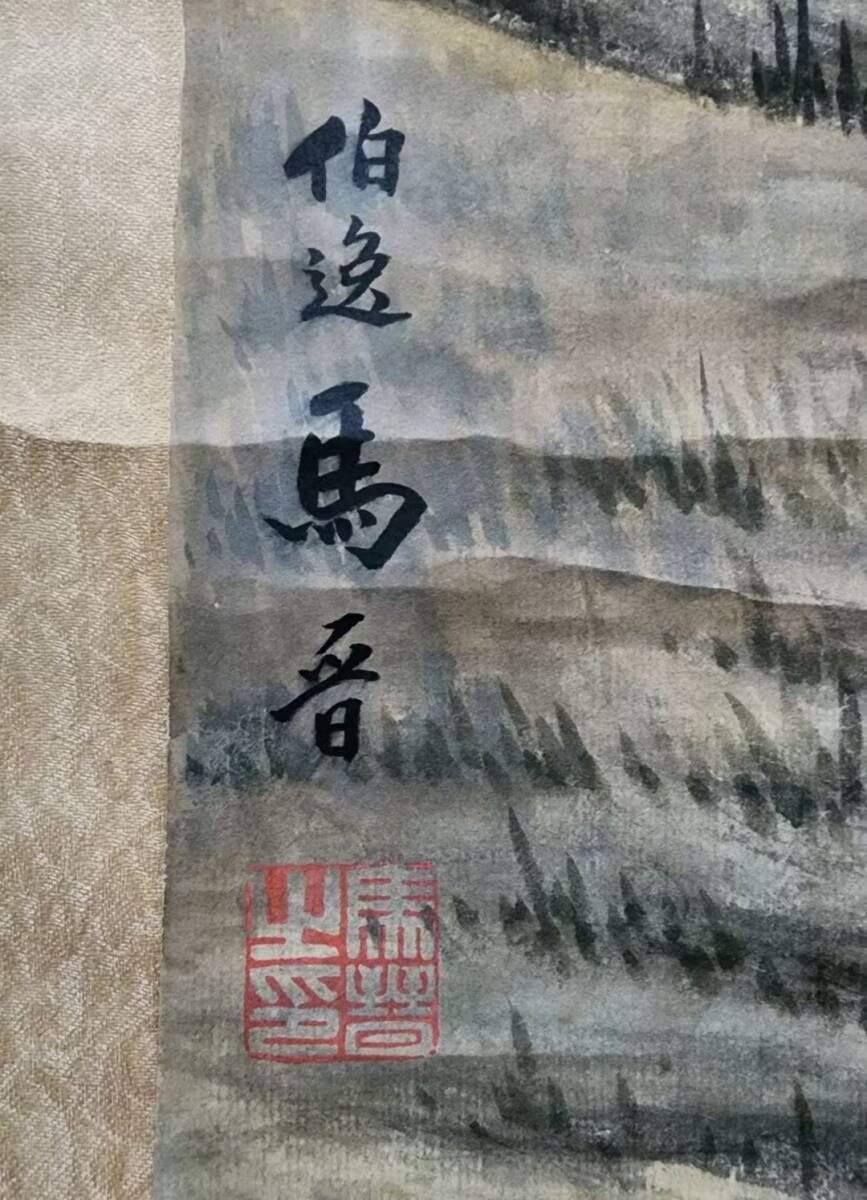 伯逸馬晉
馬晉之印